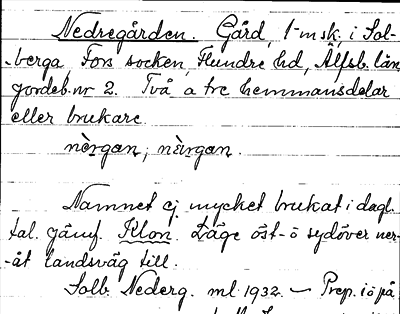 Nedregården. Gård, 1 msk, i Sol-
berga Fors socken, Flundre hd, Älfsb. län,
jordeb.nr 2. Två a tre hemmansdelar
eller brukare.
nèrgan; nèrgan.
Namnet ej mycket brukat i dagl.
tal. jämf. Klon. Läge öst- o sydöver ner-
-åt landsväg till.
Solb. Nederg. ml. 1932. – Prep. i o på